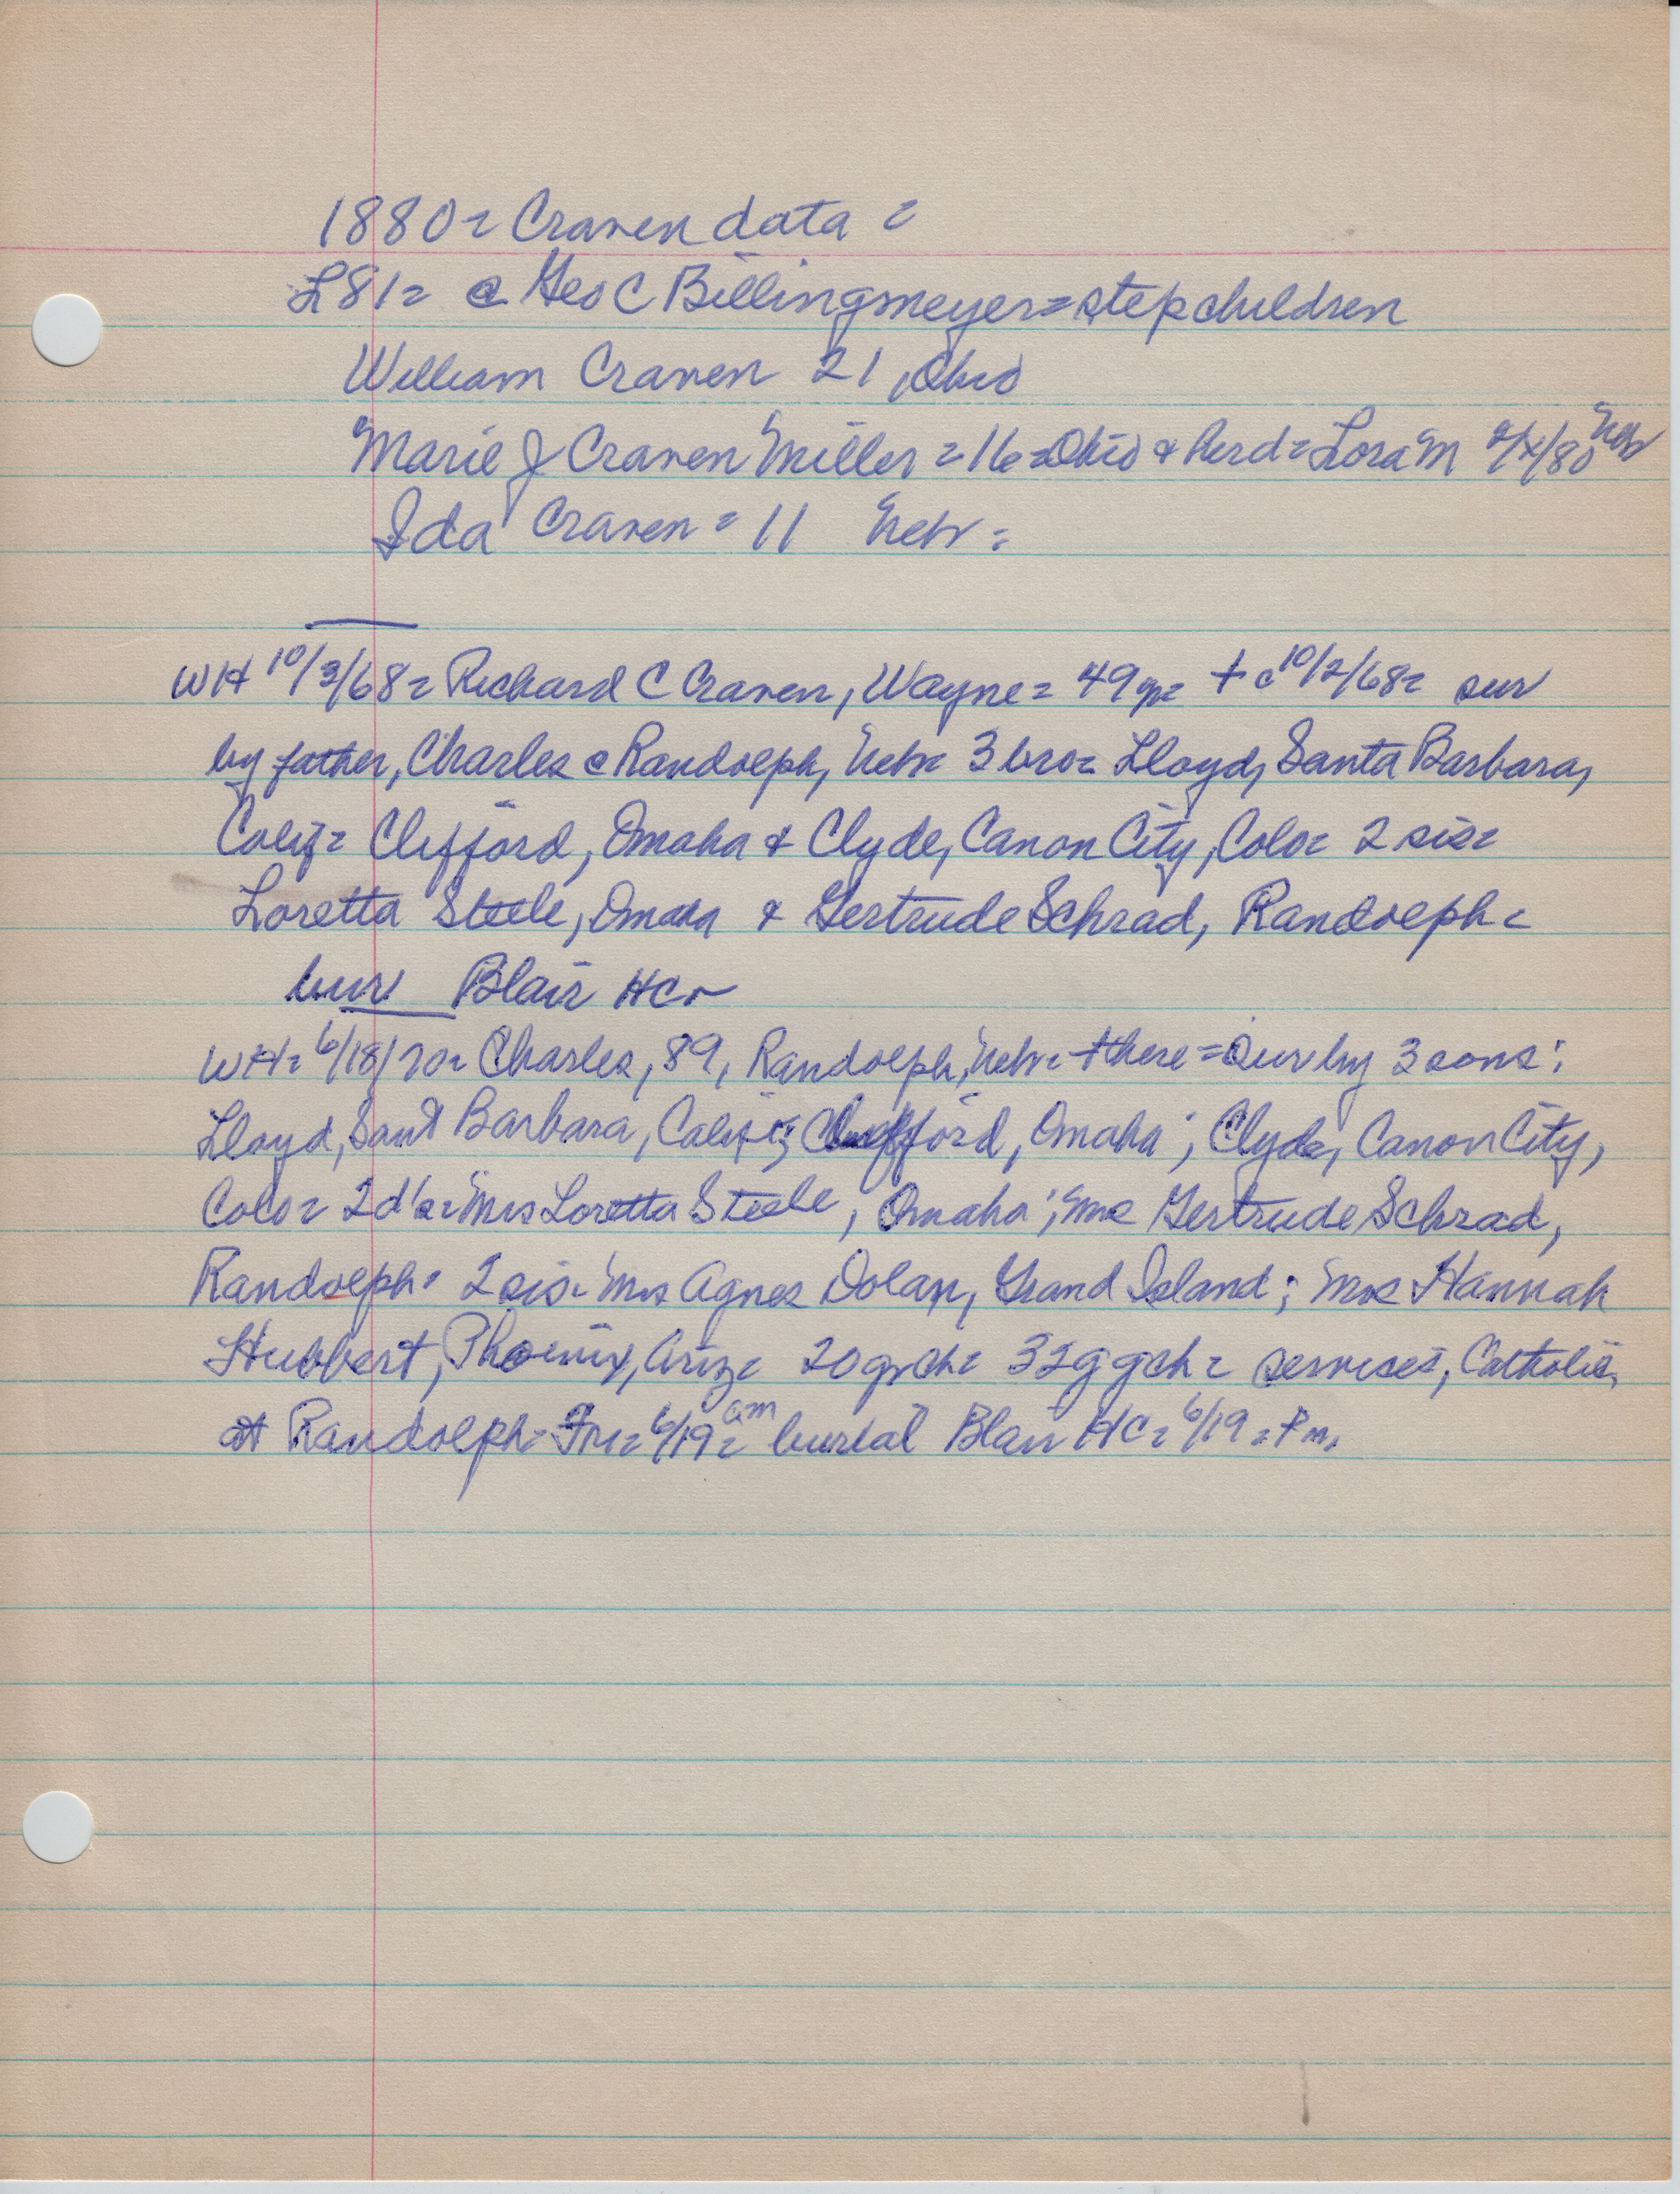 1880 = Craven data =
L81 = @ Geo C Billingmeyer = stepchildren
William Craven 21, Ohio
Marie J Craven Miller = 16 = Ohio & herd = Lora M /80 Nebr
Ida Craven = 11 Nebr =
WH 10/3/68 = Richard C Craven, Wayne = 49 yr = + c 10/2/68 = sur
by father, Charles @ Randolph, Nebr = 3 bro = Lloyd, Santa Barbara,
Calif = Clifford, Omaha & Clyde, Canon City, Colo = 2 sis =
Loretta Steele, Omaha & Gertrude Schrad, Randolph =
bur Blair HC
WH = 6/18/70 = Charles, 89, Randolph, Nebr = + there = Sur by 3 sons:
Lloyd, Sant Barbara, Calif; Clifford, Omaha; Clyde, Canon City,
Colo = 2 d's = Mrs Loretta Steele, Omaha; Mrs Gertrude Schrad,
Randolph = 2 sis = Mrs Agnes Dolan, Grand Island; Mrs Hannah
Hubbert, Phoenix, Ariz = 20 grch = 32 ggch = services, Catholic,
at Randolph - Fri = 6/19 = am burial Blair HC = 6/19 = Pm.